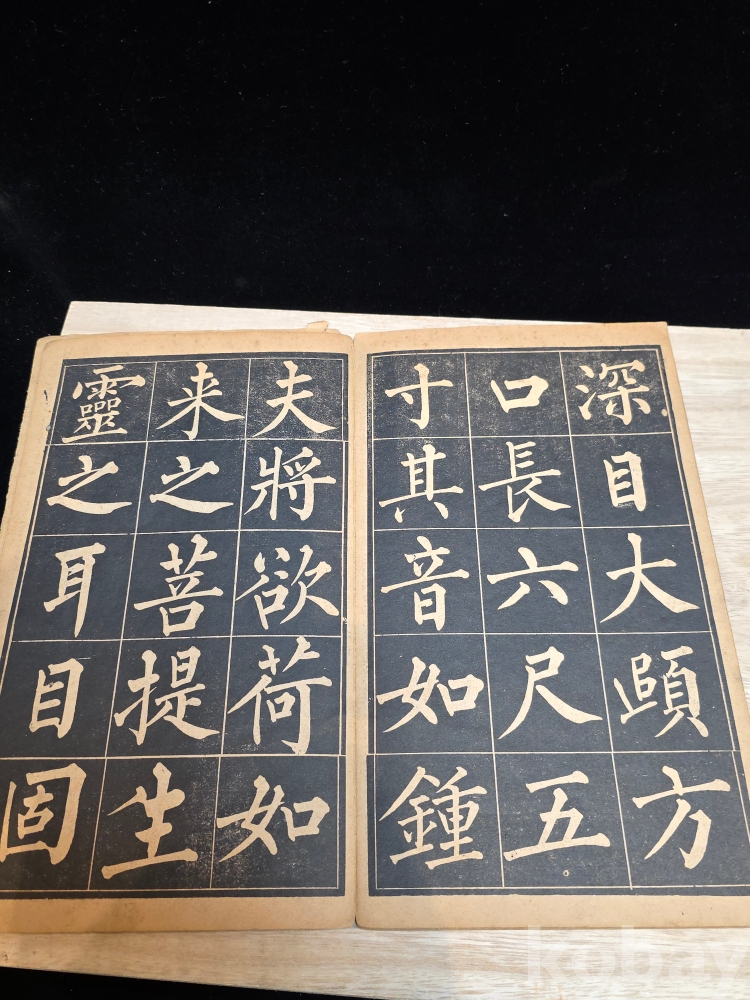 深目大頤方
口長六尺五
寸其音如鍾
夫將欲荷如
来之菩提生
靈之耳目固
kobay